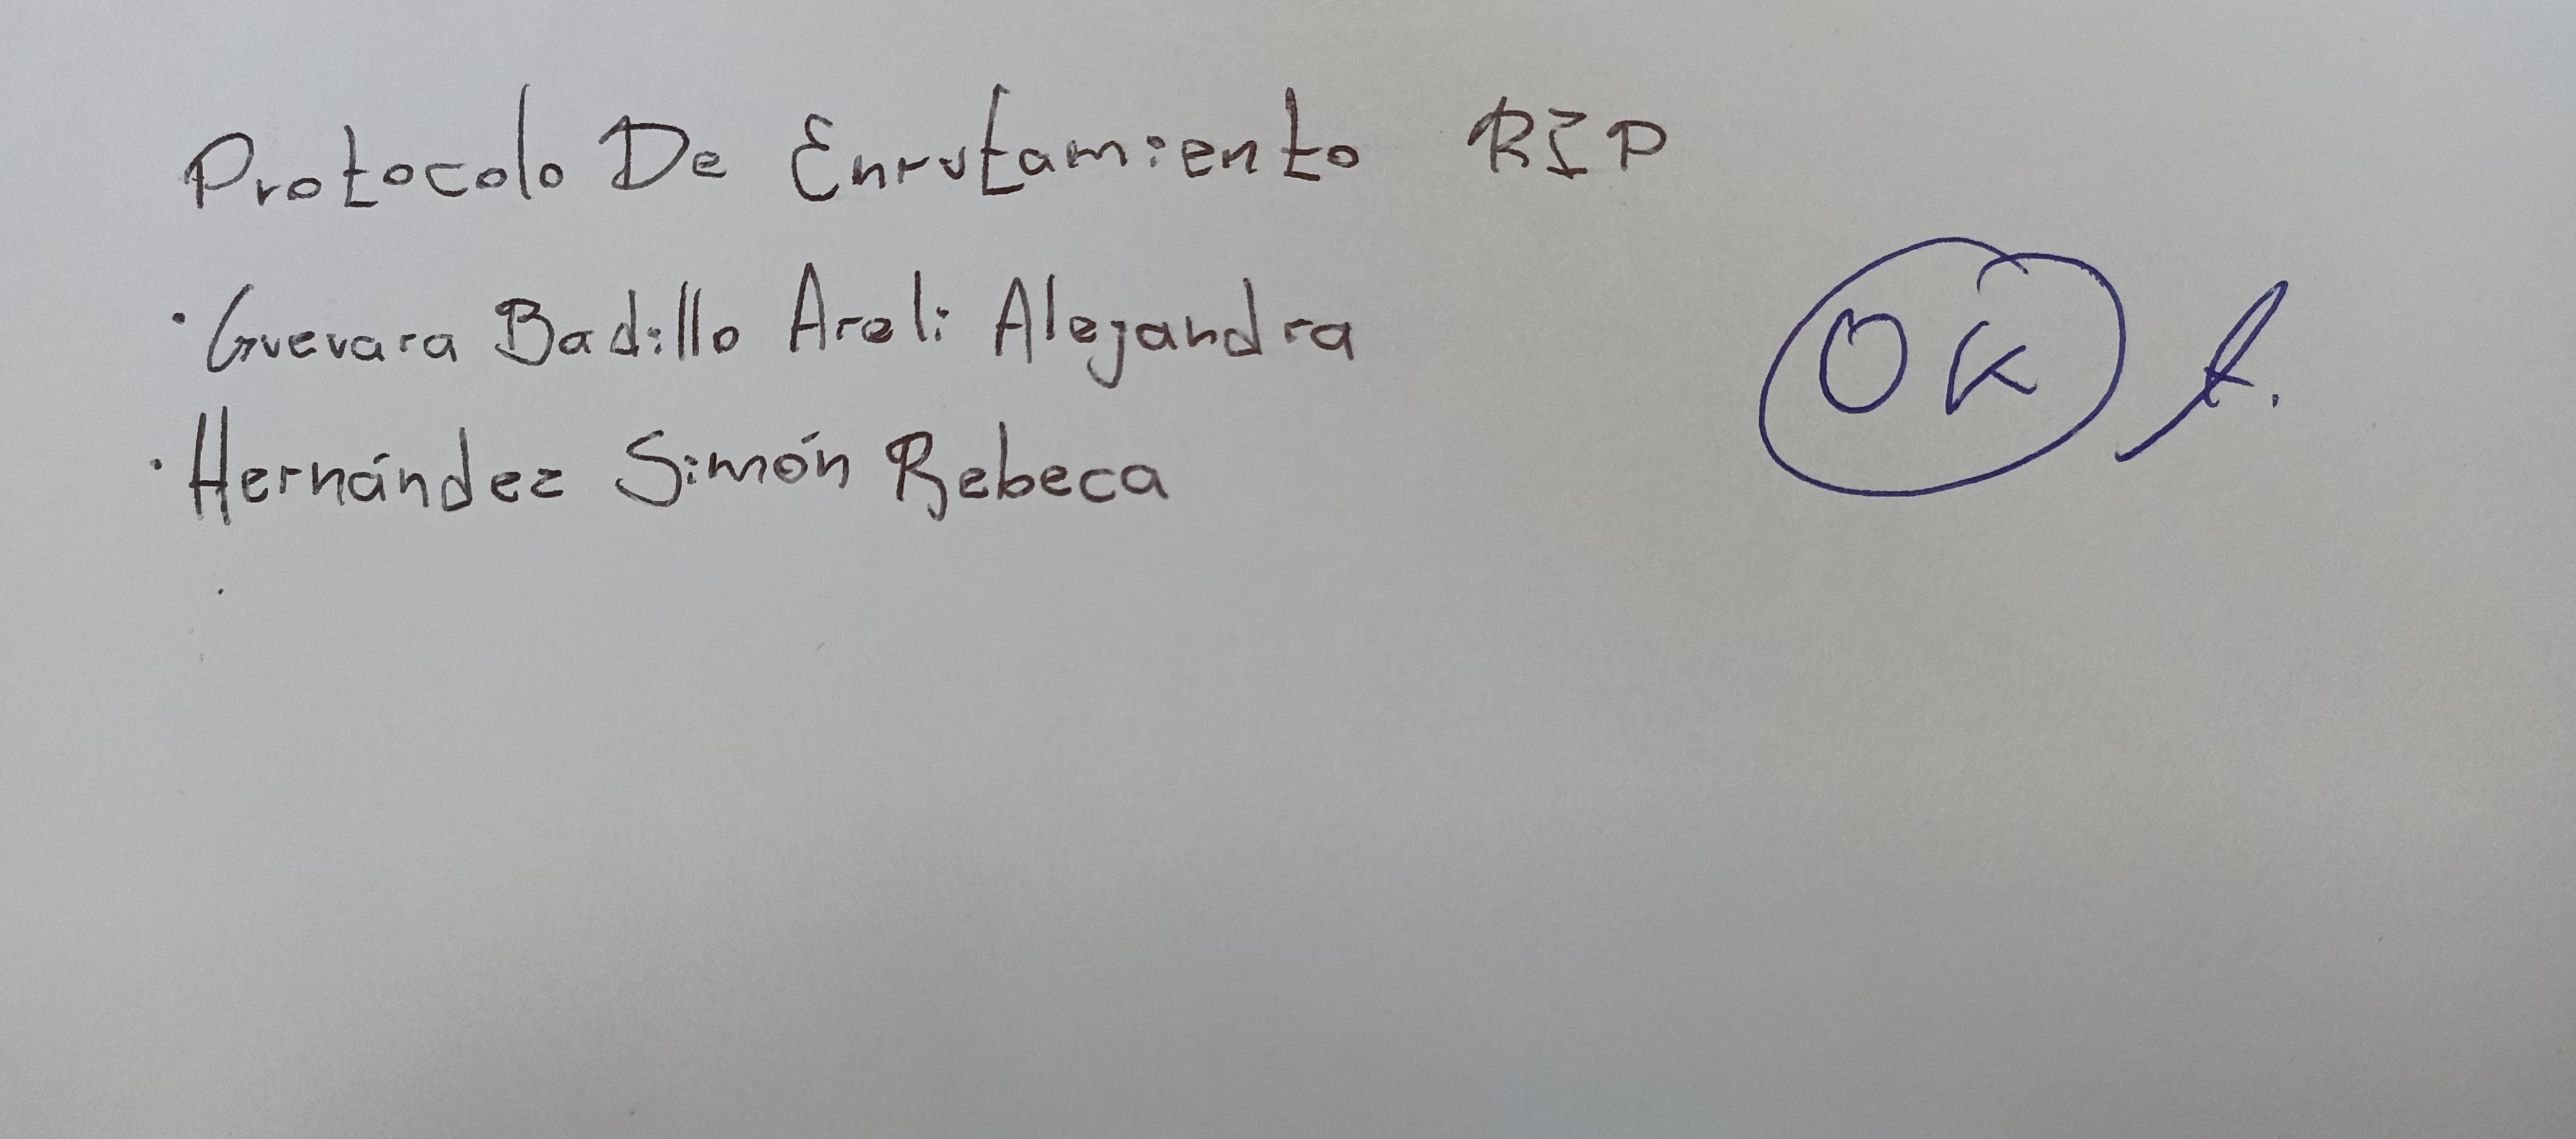 Protocolo De Enrutamiento RIP
· Guevara Badillo Areli Alejandra
· Hernández Simón Rebeca
OK